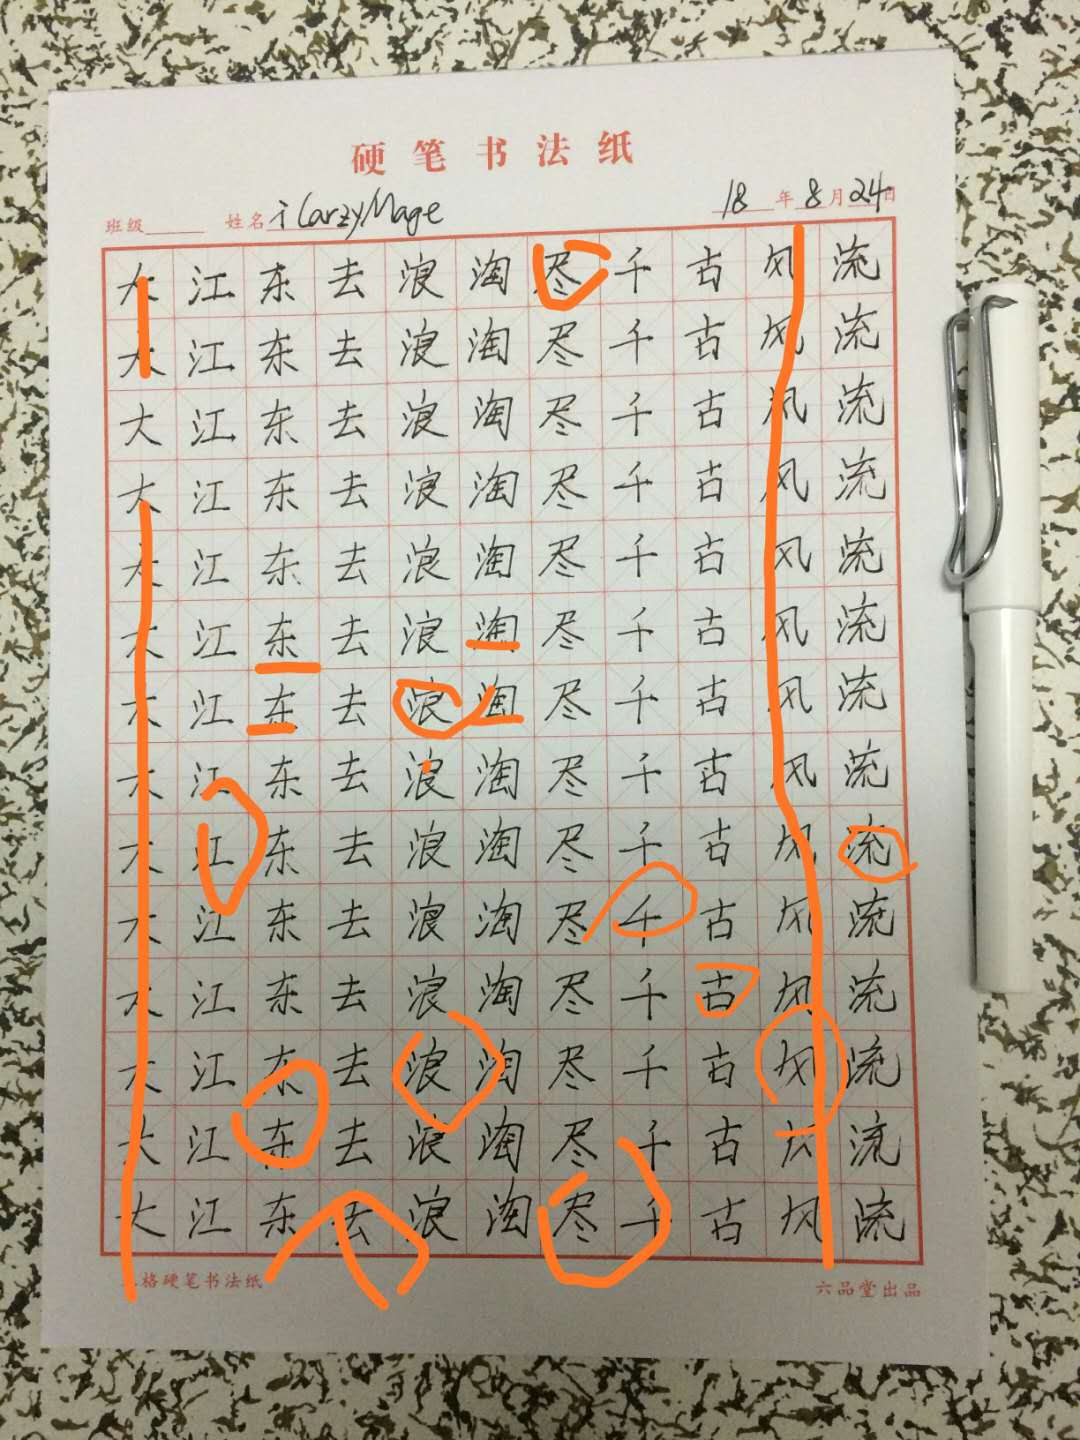 硬笔书法纸
班级 姓名 iCarzyMage 18年8月24日
大江东去浪淘尽千古风流
大江东去浪淘尽千古风流
大江东去浪淘尽千古风流
大江东去浪淘尽千古风流
大江东去浪淘尽千古风流
大江东去浪淘尽千古风流
大江东去浪淘尽千古风流
大江东去浪淘尽千古风流
大江东去浪淘尽千古风流
大江东去浪淘尽千古风流
大江东去浪淘尽千古风流
大江东去浪淘尽千古风流
大江东去浪淘尽千古风流
大江东去浪淘尽千古风流
格硬笔书法纸 六品堂出品